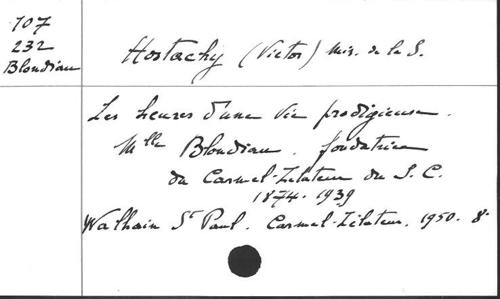 107
232
Blondiau
Hostachy (Victor) mis. de la S.
Les heures d'une vie prodigieuse.
Mlle Blondiau. fondatrice
du Carmel-Zélateur du S. C.
1874-1939
Walhain St Paul. Carmel-Zélateur. 1950. 8°